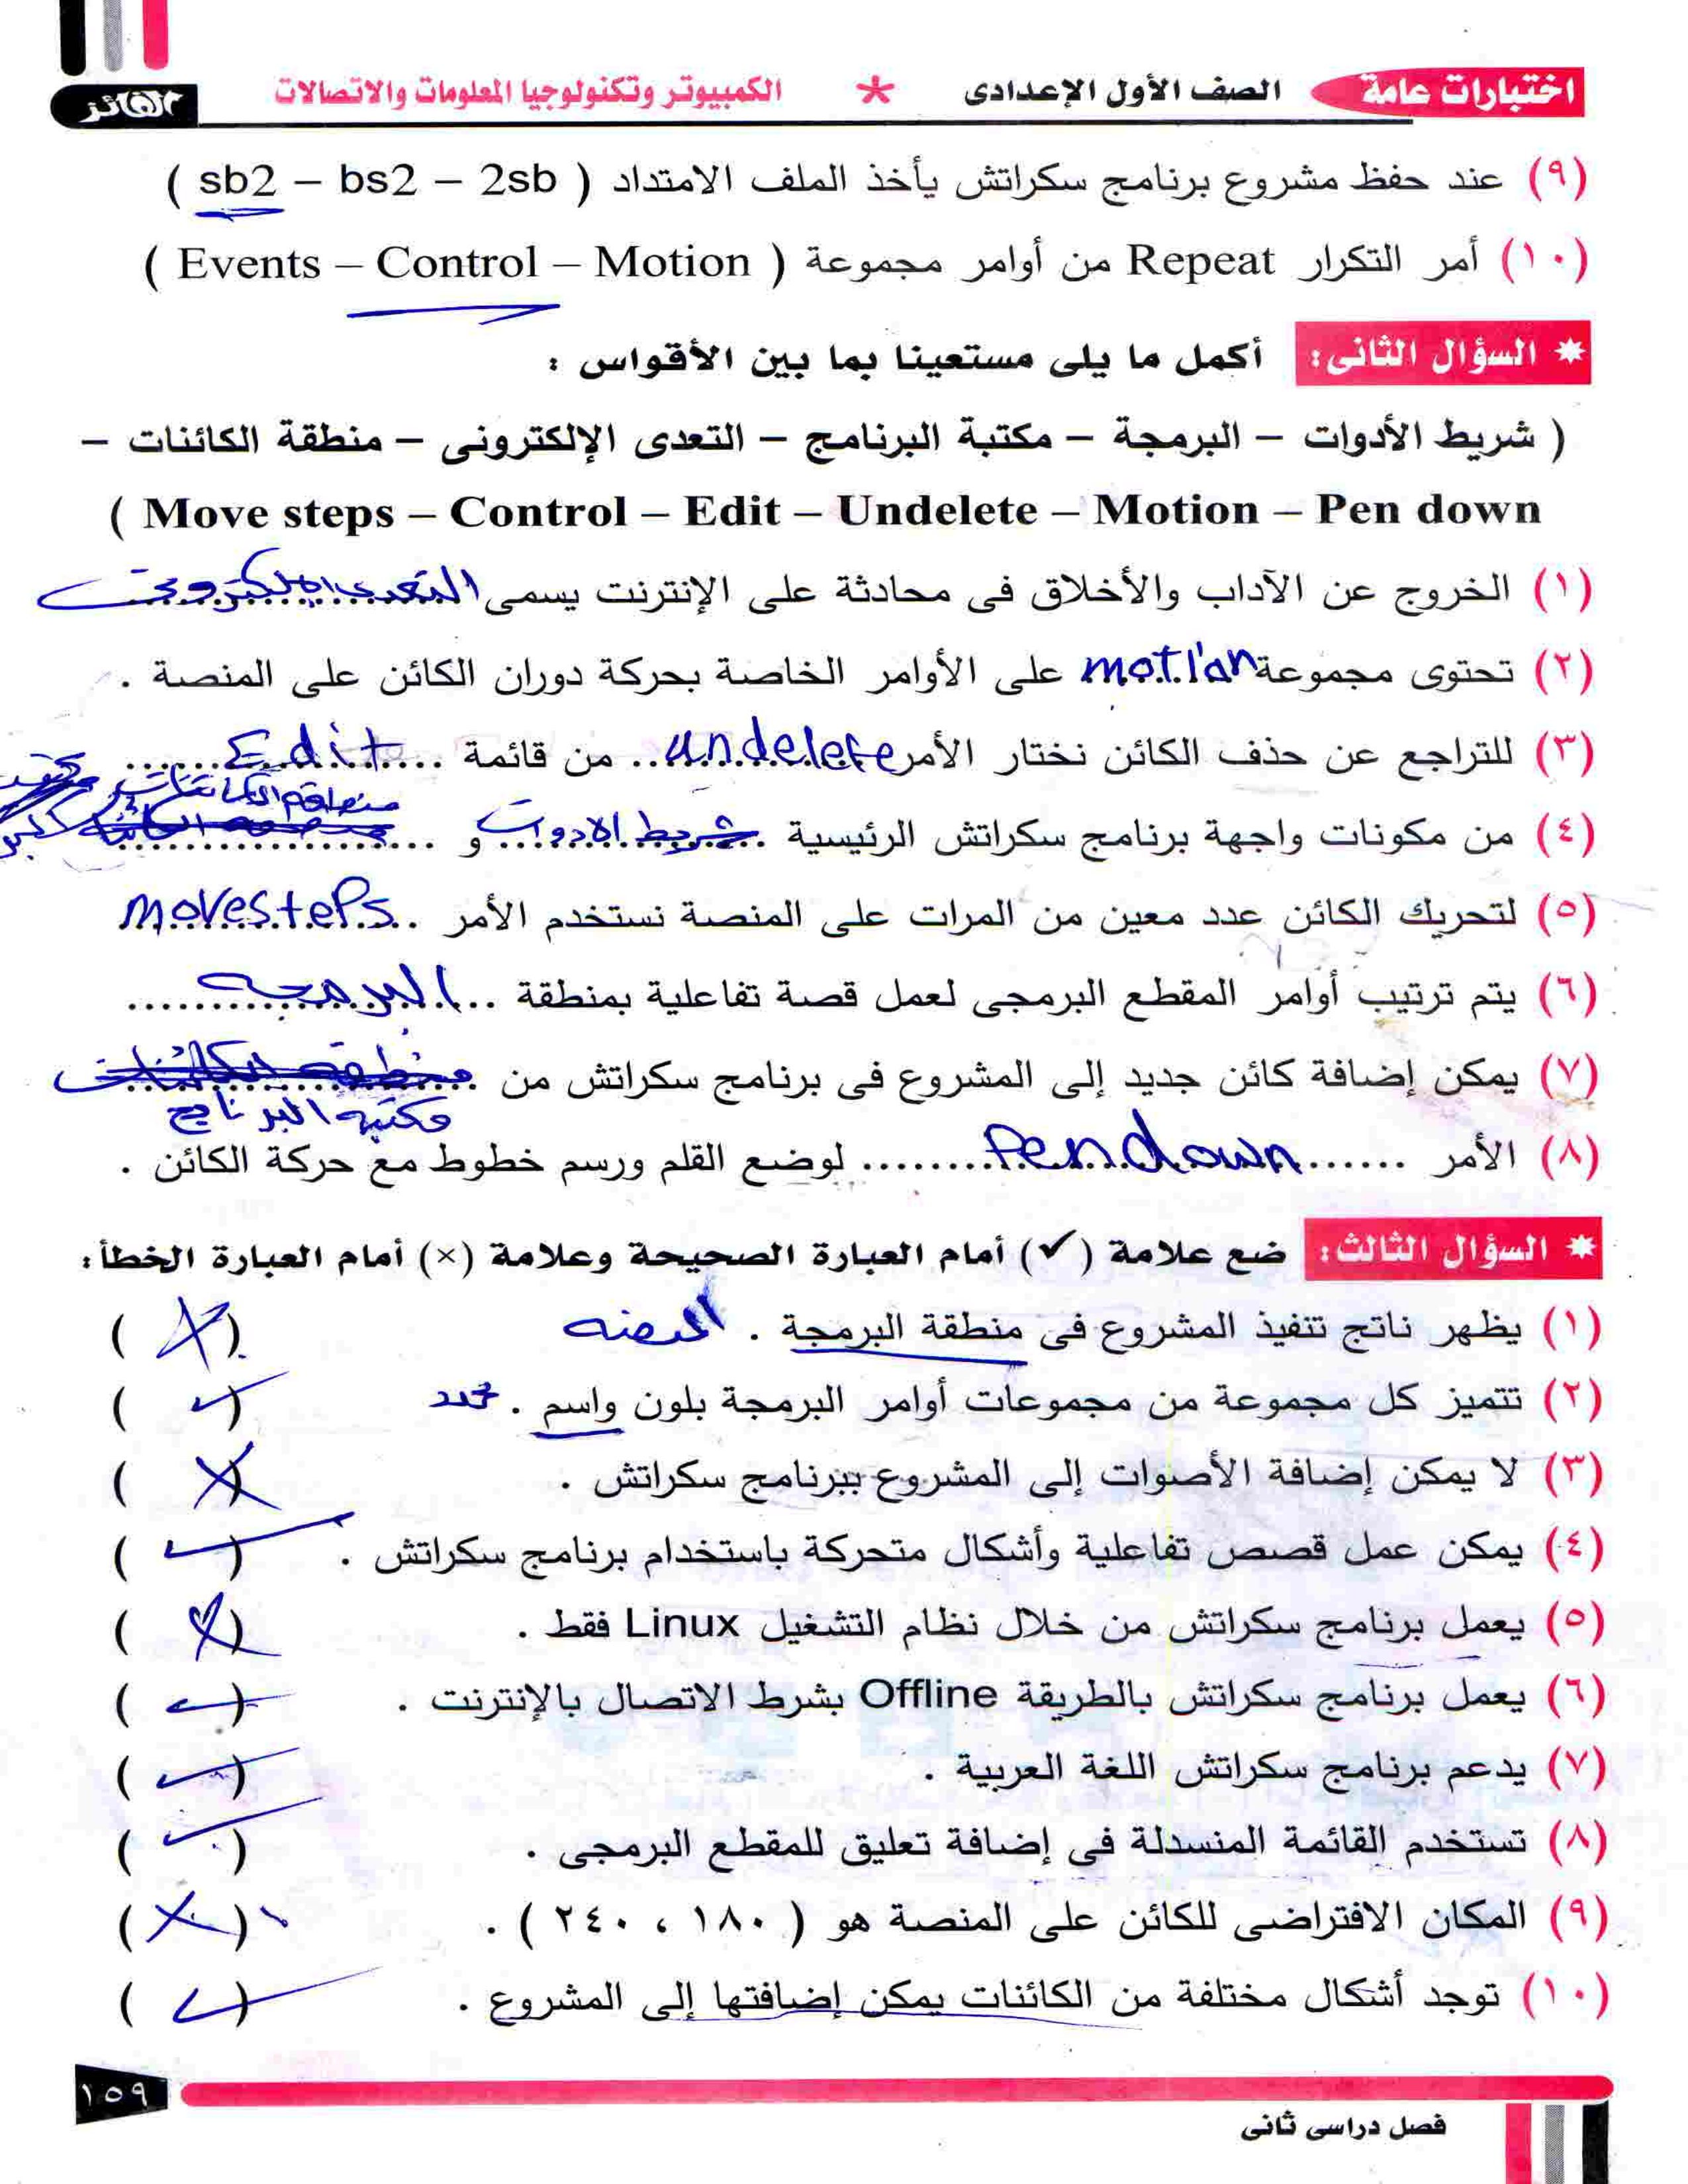 اختبارات عامة الصف الأول الإعدادى * الكمبيوتر وتكنولوجيا المعلومات والاتصالات الفائز
(٩) عند حفظ مشروع برنامج سكراتش يأخذ الملف الامتداد ( sb2 – bs2 – 2sb )
(١٠) أمر التكرار Repeat من أوامر مجموعة ( Events – Control – Motion )
* السؤال الثانى: أكمل ما يلى مستعينا بما بين الأقواس :
( شريط الأدوات – البرمجة – مكتبة البرنامج – التعدى الإلكترونى – منطقة الكائنات –
( Move steps – Control – Edit – Undelete – Motion – Pen down
(١) الخروج عن الآداب والأخلاق فى محادثة على الإنترنت يسمى التعدى الالكترونى
(٢) تحتوى مجموعة motian على الأوامر الخاصة بحركة دوران الكائن على المنصة .
(٣) للتراجع عن حذف الكائن نختار الأمر undelete من قائمة Edit
منطقة الكائنات
(٤) من مكونات واجهة برنامج سكراتش الرئيسية شريط الادوات و
(٥) لتحريك الكائن عدد معين من المرات على المنصة نستخدم الأمر movesteps
(٦) يتم ترتيب أوامر المقطع البرمجى لعمل قصة تفاعلية بمنطقة البرمجه
(٧) يمكن إضافة كائن جديد إلى المشروع فى برنامج سكراتش من منطقه الكائنات
مكتبه البرنامج
(٨) الأمر Pen down لوضع القلم ورسم خطوط مع حركة الكائن .
* السؤال الثالث: ضع علامة (✓) أمام العبارة الصحيحة وعلامة (×) أمام العبارة الخطأ:
(١) يظهر ناتج تنفيذ المشروع فى منطقة البرمجة . المنصه (×)
(٢) تتميز كل مجموعة من مجموعات أوامر البرمجة بلون واسم . محدد (✓)
(٣) لا يمكن إضافة الأصوات إلى المشروع ببرنامج سكراتش . (×)
(٤) يمكن عمل قصص تفاعلية وأشكال متحركة باستخدام برنامج سكراتش . (✓)
(٥) يعمل برنامج سكراتش من خلال نظام التشغيل Linux فقط . (×)
(٦) يعمل برنامج سكراتش بالطريقة Offline بشرط الاتصال بالإنترنت . (✓)
(٧) يدعم برنامج سكراتش اللغة العربية . (✓)
(٨) تستخدم القائمة المنسدلة فى إضافة تعليق للمقطع البرمجى . (✓)
(٩) المكان الافتراضى للكائن على المنصة هو ( ١٨٠ ، ٢٤٠ ) . (×)
(١٠) توجد أشكال مختلفة من الكائنات يمكن إضافتها إلى المشروع . (✓)
١٥٩
فصل دراسى ثانى